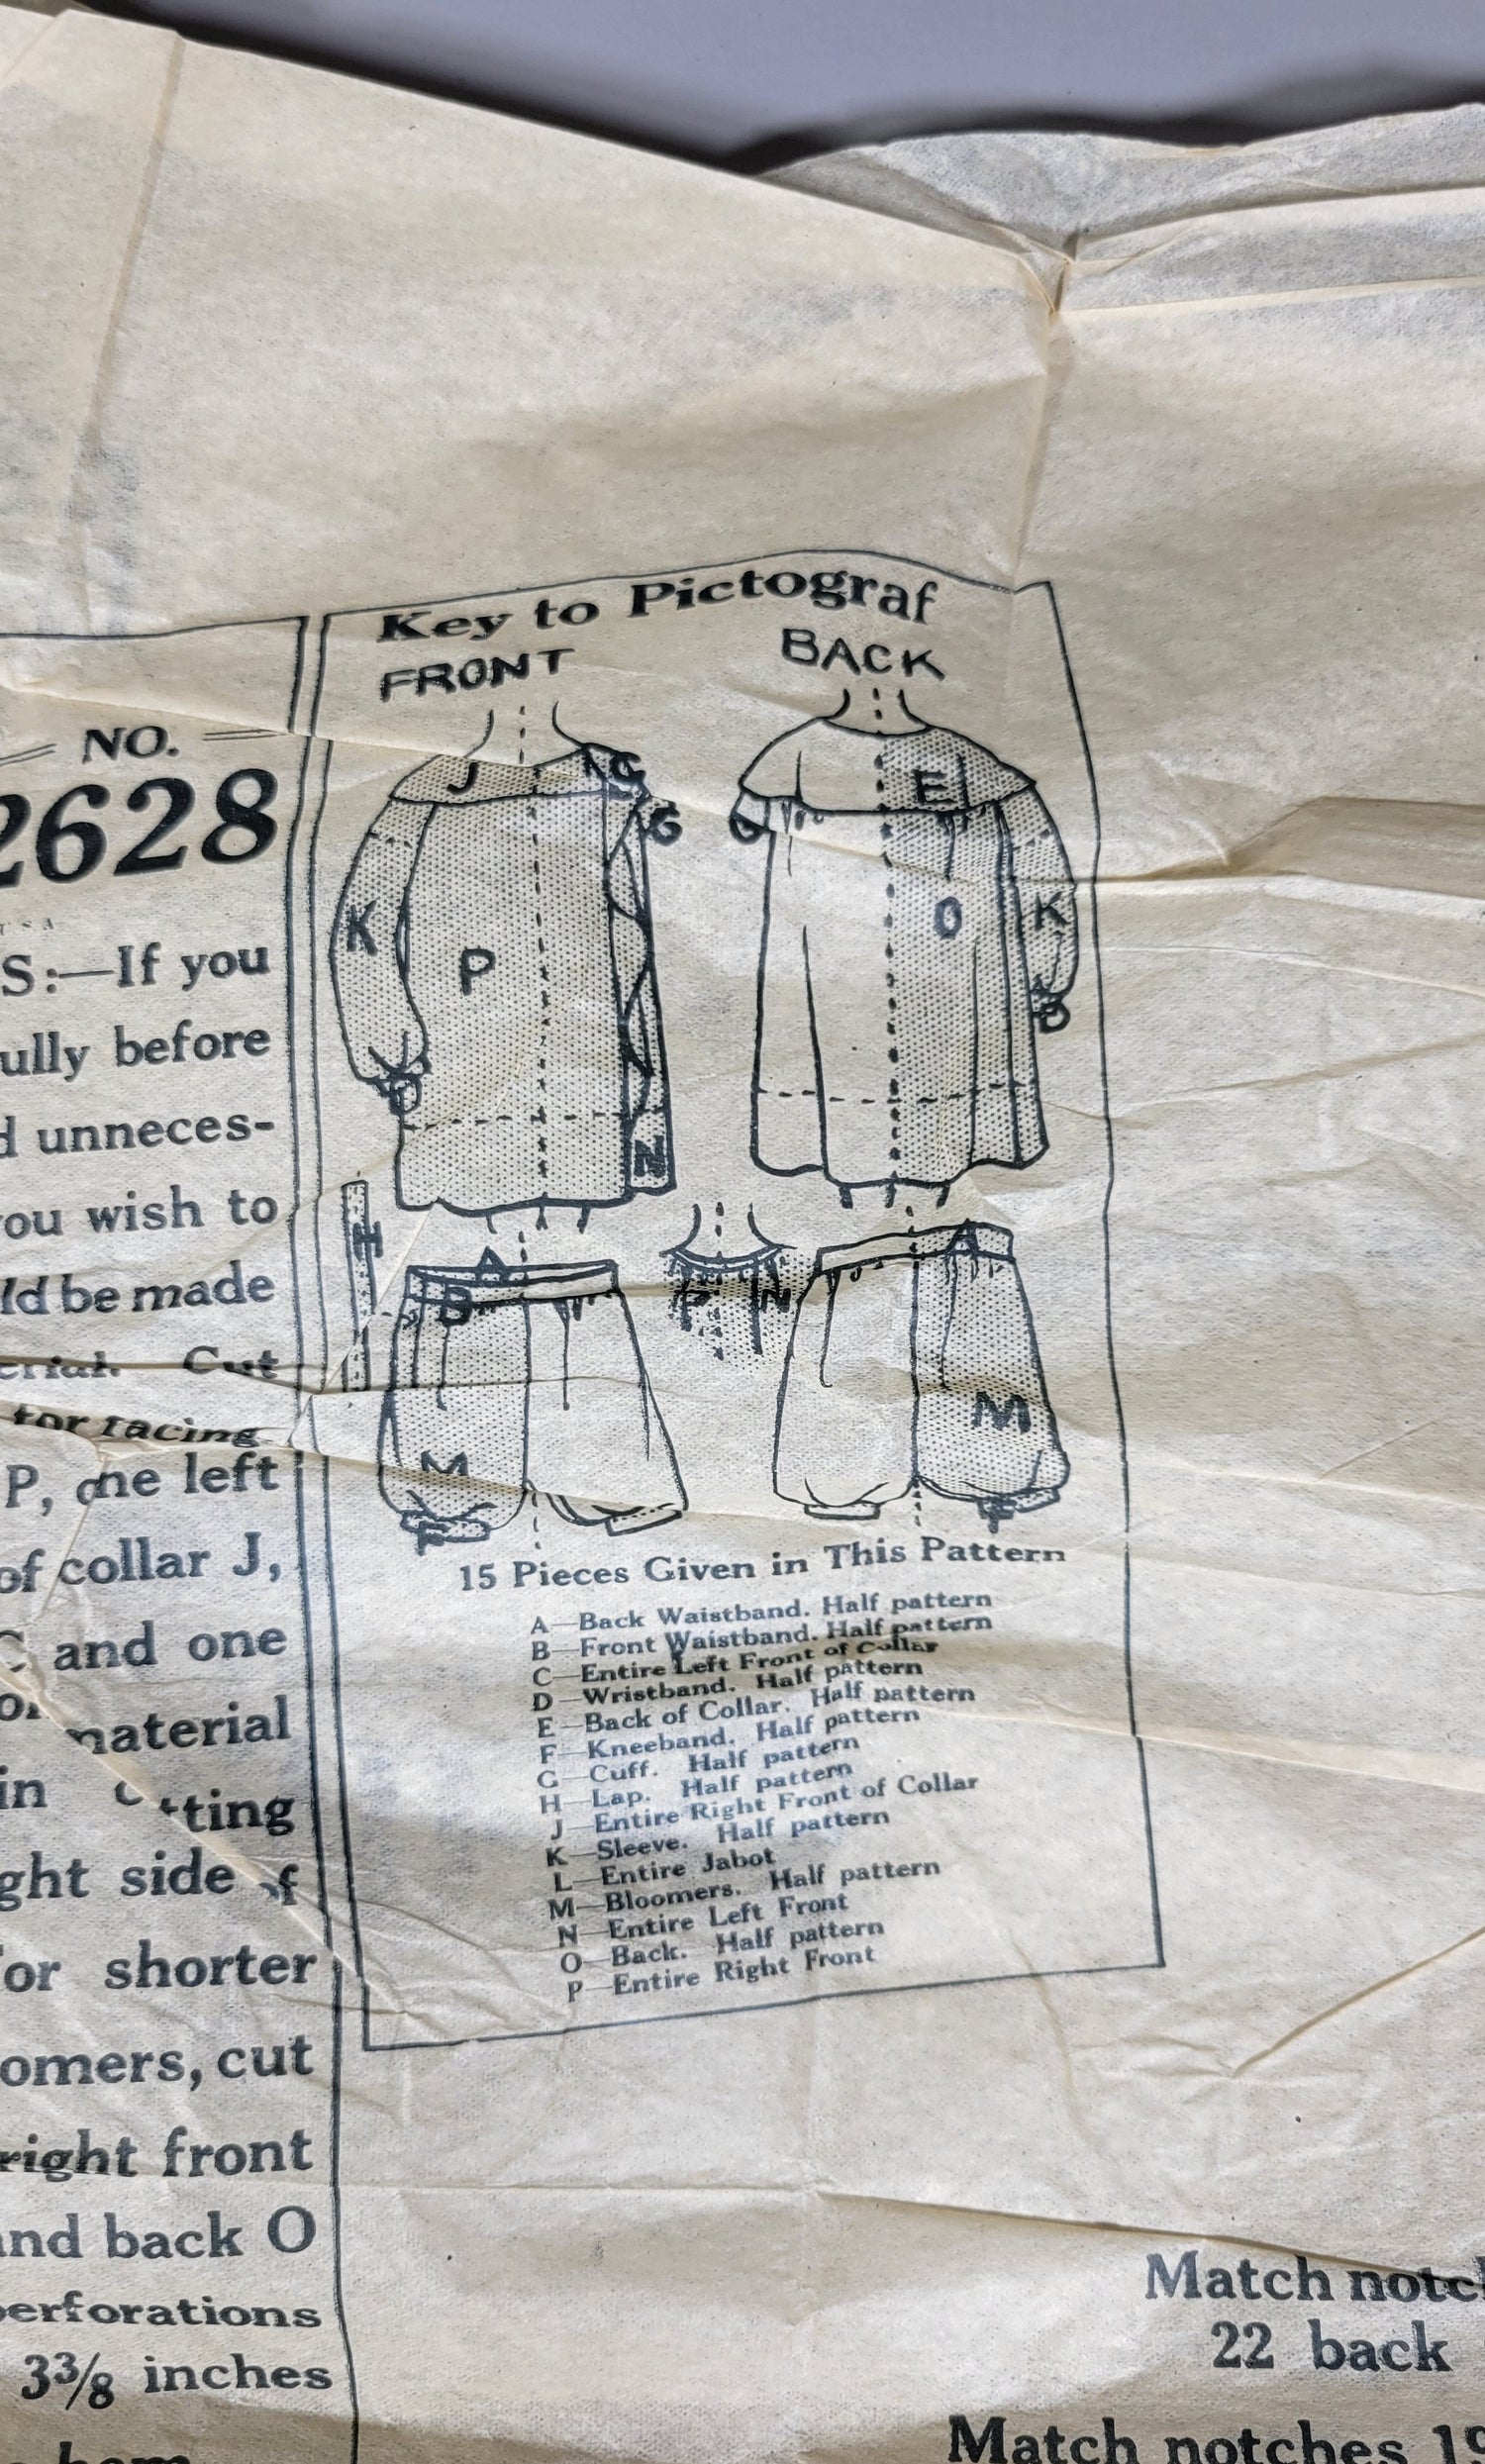 NO.
2628
S:—If you
ully before
d unneces-
ou wish to
ld be made
erial. Cut
for facing
P, one left
of collar J,
C and one
material
in tting
ght side of
or shorter
omers, cut
right front
and back O
perforations
3⅜ inches
hem
Key to Pictograf
FRONT
BACK
J C G K P D N
E G O K D
H A B M F
P N
A M F
15 Pieces Given in This Pattern
A—Back Waistband. Half pattern
B—Front Waistband. Half pattern
C—Entire Left Front of Collar
D—Wristband. Half pattern
E—Back of Collar. Half pattern
F—Kneeband. Half pattern
G—Cuff. Half pattern
H—Lap. Half pattern
J—Entire Right Front of Collar
K—Sleeve. Half pattern
L—Entire Jabot
M—Bloomers. Half pattern
N—Entire Left Front
O—Back. Half pattern
P—Entire Right Front
Match notch
22 back
Match notches 19